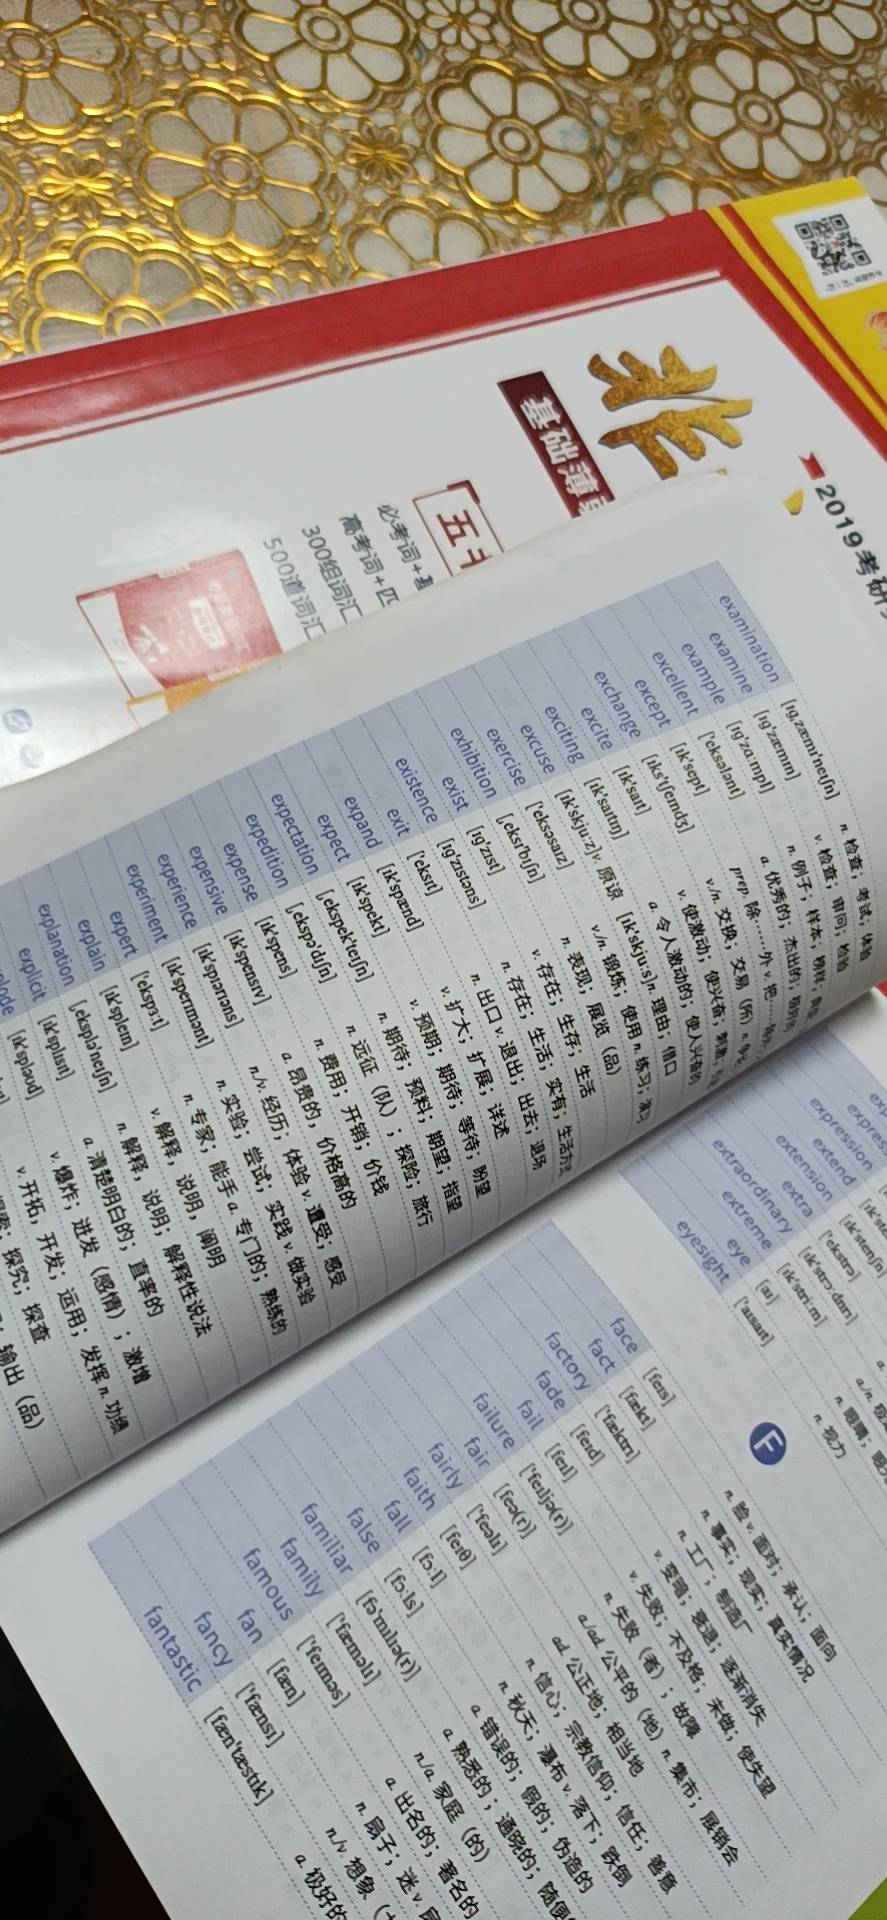 2019考研
基础薄
五
必考词+
高考词+四
300组词汇
500道词汇
examination [ɪɡˌzæmɪ'neɪʃn] n. 检查；考试；体验
examine [ɪɡ'zæmɪn] v. 检查；审问；检验
example [ɪɡ'zɑːmpl] n. 例子；样本；榜样；
excellent ['eksələnt] a. 优秀的；杰出的；
except [ɪk'sept] prep. 除……外 v. 把
exchange [ɪks'tʃeɪndʒ] v./n. 交换；交易（所）n.
excite [ɪk'saɪt] v. 使激动；使兴奋；刺激；
exciting [ɪk'saɪtɪŋ] a. 令人激动的；使人兴奋的
excuse [ɪk'skjuːz]v. 原谅 [ɪk'skjuːs]n. 理由；借口
exercise ['eksəsaɪz] v./n. 锻炼；使用 n. 练习；
exhibition [ˌeksɪ'bɪʃn] n. 表现；展览（品）
exist [ɪɡ'zɪst] v. 存在；生存；生活
existence [ɪɡ'zɪstəns] n. 存在；生活；实有；生活方式
exit ['eksɪt] n. 出口 v. 退出；出去；退场
expand [ɪk'spænd] v. 扩大；扩展；详述
expect [ɪk'spekt] v. 预期；期待；等待；盼望
expectation [ˌekspek'teɪʃn] n. 期待；预料；期望；指望
expedition [ˌekspə'dɪʃn] n. 远征（队）；探险；旅行
expense [ɪk'spens] n. 费用；开销；价钱
expensive [ɪk'spensɪv] a. 昂贵的，价格高的
experience [ɪk'spɪərɪəns] n./v. 经历；体验 v. 遭受；感受
experiment [ɪk'sperɪmənt] n. 实验；尝试；实践 v. 做实验
expert ['ekspɜːt] n. 专家；能手 a. 专门的；熟练的
explain [ɪk'spleɪn] v. 解释，说明，阐明
explanation [ˌeksplə'neɪʃn] n. 解释，说明；解释性说法
explicit [ɪk'splɪsɪt] a. 清楚明白的；直率的
[ɪk'spləʊd] v. 爆炸；迸发（感情）；激增
v. 开拓，开发；运用；发挥 n. 功绩
探究；探查
输出（品）
expression
extend
extension [ɪk'stenʃn]
extra ['ekstrə]
extraordinary [ɪk'strɔːdnrɪ]
extreme [ɪk'striːm]
eye [aɪ] n. 眼睛；
eyesight ['aɪsaɪt] n. 视力
F
face [feɪs] n. 脸 v. 面对；承认；面向
fact [fækt] n. 事实；现实；真实情况
factory ['fæktrɪ] n. 工厂；制造厂
fade [feɪd] v. 变暗；衰退；逐渐消失
fail [feɪl] v. 失败；不及格；未做；使失望
failure ['feɪljə(r)] n. 失败（者）；故障
fair [feə(r)] a./ad. 公平的（地）n. 集市；展销会
fairly ['feəlɪ] ad. 公正地；相当地
faith [feɪθ] n. 信心；宗教信仰；信任；善意
fall [fɔːl] n. 秋天；瀑布 v. 落下；跌倒
false [fɔːls] a. 错误的；假的；伪造的
familiar [fə'mɪlɪə(r)] a. 熟悉的；通晓的；随便
family ['fæməlɪ] n./a. 家庭（的）
famous ['feɪməs] a. 出名的；著名的
fan [fæn] n. 扇子；迷 v. 扇
fancy ['fænsɪ] n./v. 想象
fantastic [fæn'tæstɪk] a. 极好的